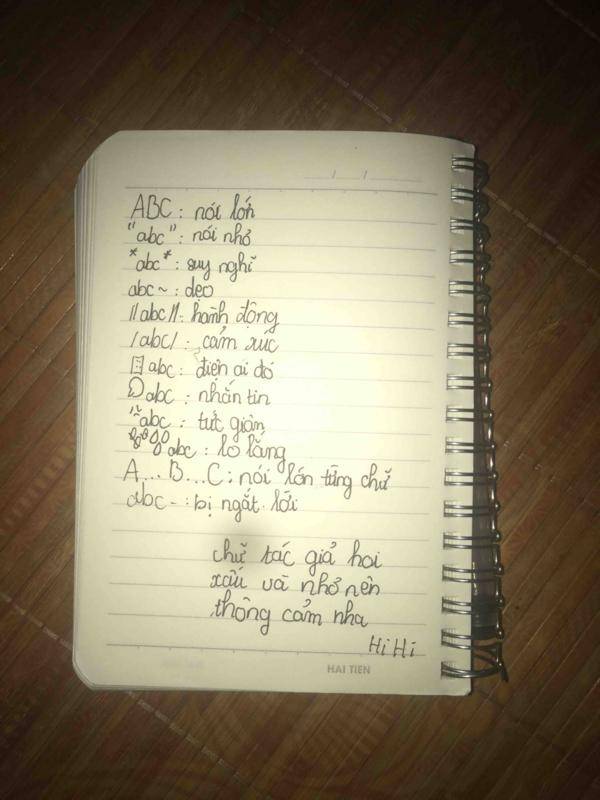 / /
ABC : nói lớn
"abc" : nói nhỏ
*abc* : suy nghĩ
abc ~ : dẹo
//abc// : hành động
/abc/ : cảm xúc
abc : điện ai đó
abc : nhắn tin
abc : tức giận
abc : lo lắng
A...B...C : nói lớn từng chữ
abc - : bị ngắt lời
chữ tác giả hơi
xấu và nhỏ nên
thông cảm nha
HiHi
HAI TIEN